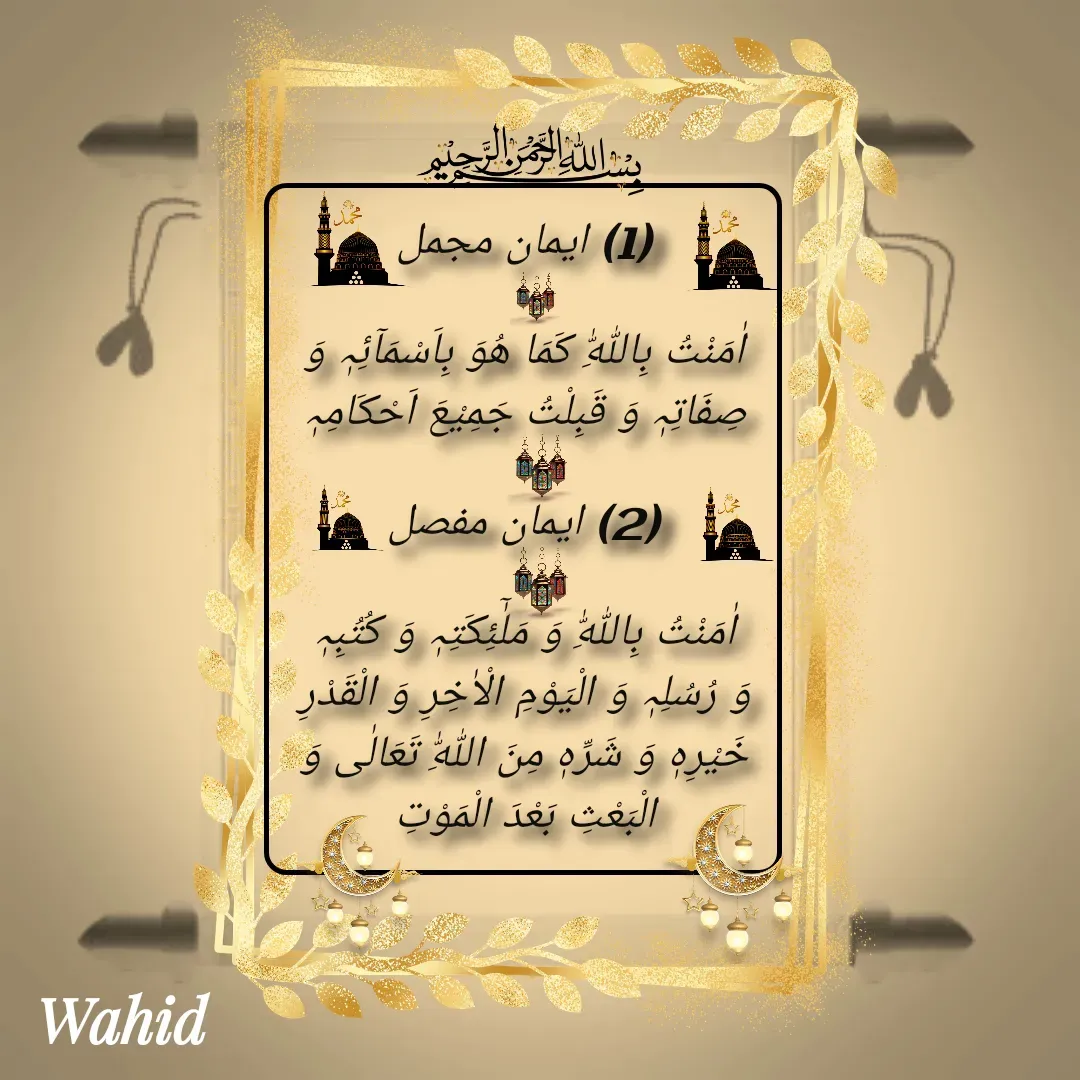 بِسْمِ اللهِ الرَّحْمٰنِ الرَّحِيْمِ
(1) ایمان مجمل
محمد
محمد
اٰمَنْتُ بِاللّٰهِ کَمَا هُوَ بِاَسْمَآئِہٖ وَ
صِفَاتِہٖ وَ قَبِلْتُ جَمِیْعَ اَحْکَامِہٖ
(2) ایمان مفصل
محمد
محمد
اٰمَنْتُ بِاللّٰهِ وَ مَلٰٓئِکَتِہٖ وَ کُتُبِہٖ
وَ رُسُلِہٖ وَ الْیَوْمِ الْاٰخِرِ وَ الْقَدْرِ
خَیْرِہٖ وَ شَرِّہٖ مِنَ اللّٰهِ تَعَالٰی وَ
الْبَعْثِ بَعْدَ الْمَوْتِ
Wahid